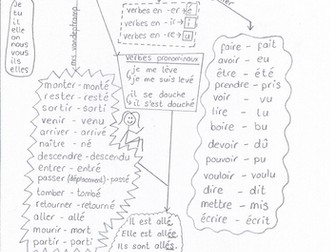 Je
tu
il
elle
on
nous
vous
ils
elles
verbes en -er → é
verbes en -ir → i
verbes en -re → u
mrs vandertramp
verbes pronominaux
je me lève
je me suis levé
il se douche
il s'est douché
monter - monté
rester - resté
sortir - sorti
venir - venu
arriver - arrivé
naître - né
descendre - descendu
entrer - entré
passer (déplacement) - passé
tomber - tombé
retourner - retourné
aller - allé
mourir - mort
partir - parti
faire - fait
avoir - eu
être - été
prendre - pris
voir - vu
lire - lu
boire - bu
devoir - dû
pouvoir - pu
vouloir - voulu
dire - dit
mettre - mis
écrire - écrit
il est allé.
Elle est allée.
Ils sont allés.